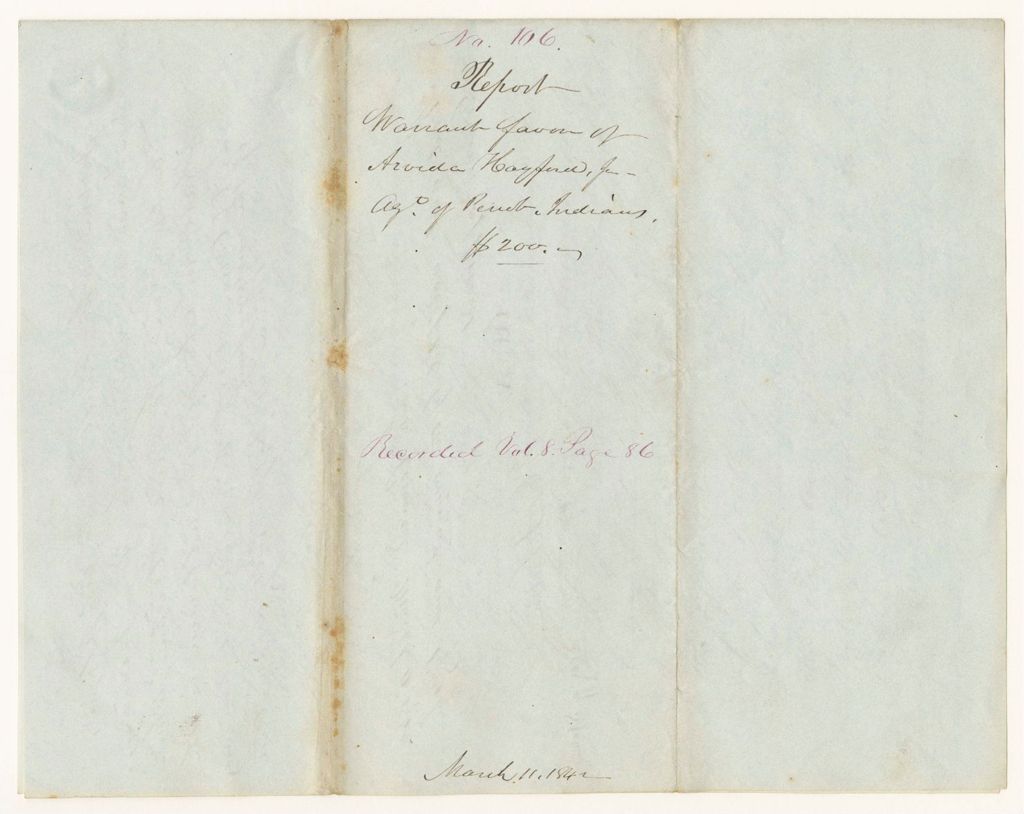 No. 106.
Report
Warrant favor of
Arvida Hayford, Jr
Agt. of Penob. Indians.
$200.
Recorded Vol. 8. Page 86
March 11. 1842